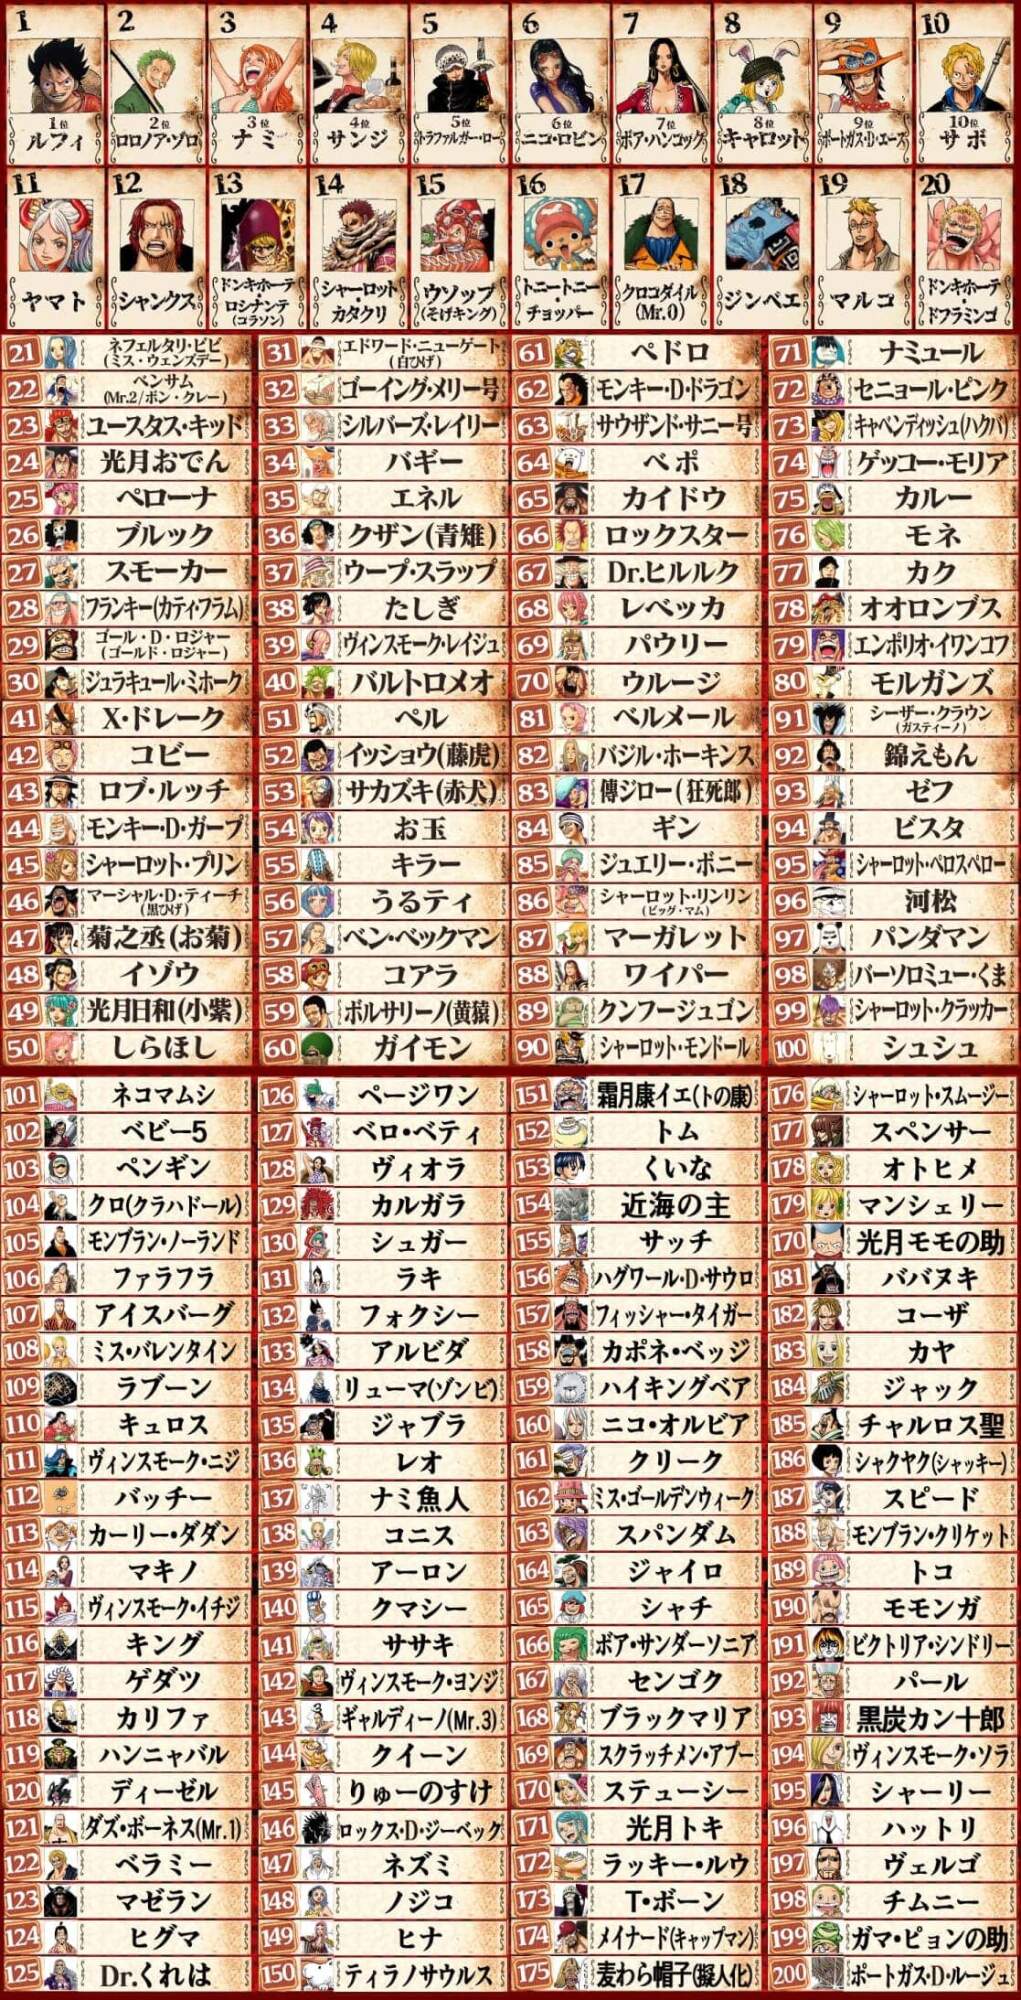 1
1位
ルフィ
2
2位
ロロノア・ゾロ
3
3位
ナミ
4
4位
サンジ
5
5位
トラファルガー・ロー
6
6位
ニコ・ロビン
7
7位
ボア・ハンコック
8
8位
キャロット
9
9位
ポートガス・D・エース
10
10位
サボ
11
ヤマト
12
シャンクス
13
ドンキホーテ
・
ロシナンテ
(コラソン)
14
シャーロット
・
カタクリ
15
ウソップ
(そげキング)
16
トニートニー
・
チョッパー
17
クロコダイル
(Mr.0)
18
ジンベエ
19
マルコ
20
ドンキホーテ
・
ドフラミンゴ
21 ネフェルタリ・ビビ
(ミス・ウェンズデー)
22 ベンサム
(Mr.2/ボン・クレー)
23 ユースタス・キッド
24 光月おでん
25 ペローナ
26 ブルック
27 スモーカー
28 フランキー(カティ・フラム)
29 ゴール・D・ロジャー
(ゴールド・ロジャー)
30 ジュラキュール・ミホーク
31 エドワード・ニューゲート
(白ひげ)
32 ゴーイング・メリー号
33 シルバーズ・レイリー
34 バギー
35 エネル
36 クザン(青雉)
37 ウープ・スラップ
38 たしぎ
39 ヴィンスモーク・レイジュ
40 バルトロメオ
61 ペドロ
62 モンキー・D・ドラゴン
63 サウザンド・サニー号
64 ベポ
65 カイドウ
66 ロックスター
67 Dr.ヒルルク
68 レベッカ
69 パウリー
70 ウルージ
71 ナミュール
72 セニョール・ピンク
73 キャベンディッシュ(ハクバ)
74 ゲッコー・モリア
75 カルー
76 モネ
77 カク
78 オオロンブス
79 エンポリオ・イワンコフ
80 モルガンズ
41 X・ドレーク
42 コビー
43 ロブ・ルッチ
44 モンキー・D・ガープ
45 シャーロット・プリン
46 マーシャル・D・ティーチ
(黒ひげ)
47 菊之丞(お菊)
48 イゾウ
49 光月日和(小紫)
50 しらほし
51 ペル
52 イッショウ(藤虎)
53 サカズキ(赤犬)
54 お玉
55 キラー
56 うるティ
57 ベン・ベックマン
58 コアラ
59 ボルサリーノ(黄猿)
60 ガイモン
81 ベルメール
82 バジル・ホーキンス
83 傳ジロー(狂死郎)
84 ギン
85 ジュエリー・ボニー
86 シャーロット・リンリン
(ビッグ・マム)
87 マーガレット
88 ワイパー
89 クンフージュゴン
90 シャーロット・モンドール
91 シーザー・クラウン
(ガスティーノ)
92 錦えもん
93 ゼフ
94 ビスタ
95 シャーロット・ペロスペロー
96 河松
97 パンダマン
98 バーソロミュー・くま
99 シャーロット・クラッカー
100 シュシュ
101 ネコマムシ
102 ベビー5
103 ペンギン
104 クロ(クラハドール)
105 モンブラン・ノーランド
106 ファラフラ
107 アイスバーグ
108 ミス・バレンタイン
109 ラブーン
110 キュロス
111 ヴィンスモーク・ニジ
112 バッチー
113 カーリー・ダダン
114 マキノ
115 ヴィンスモーク・イチジ
116 キング
117 ゲダツ
118 カリファ
119 ハンニャバル
120 ディーゼル
121 ダズ・ボーネス(Mr.1)
122 ベラミー
123 マゼラン
124 ヒグマ
125 Dr.くれは
126 ページワン
127 ベロ・ベティ
128 ヴィオラ
129 カルガラ
130 シュガー
131 ラキ
132 フォクシー
133 アルビダ
134 リューマ(ゾンビ)
135 ジャブラ
136 レオ
137 ナミ魚人
138 コニス
139 アーロン
140 クマシー
141 ササキ
142 ヴィンスモーク・ヨンジ
143 ギャルディーノ(Mr.3)
144 クイーン
145 りゅーのすけ
146 ロックス・D・ジーベック
147 ネズミ
148 ノジコ
149 ヒナ
150 ティラノサウルス
151 霜月康イエ(トの康)
152 トム
153 くいな
154 近海の主
155 サッチ
156 ハグワール・D・サウロ
157 フィッシャー・タイガー
158 カポネ・ベッジ
159 ハイキングベア
160 ニコ・オルビア
161 クリーク
162 ミス・ゴールデンウィーク
163 スパンダム
164 ジャイロ
165 シャチ
166 ボア・サンダーソニア
167 センゴク
168 ブラックマリア
169 スクラッチメン・アプー
170 ステューシー
171 光月トキ
172 ラッキー・ルウ
173 T・ボーン
174 メイナード(キャップマン)
175 麦わら帽子(擬人化)
176 シャーロット・スムージー
177 スペンサー
178 オトヒメ
179 マンシェリー
170 光月モモの助
181 ババヌキ
182 コーザ
183 カヤ
184 ジャック
185 チャルロス聖
186 シャクヤク(シャッキー)
187 スピード
188 モンブラン・クリケット
189 トコ
190 モモンガ
191 ビクトリア・シンドリー
192 パール
193 黒炭カン十郎
194 ヴィンスモーク・ソラ
195 シャーリー
196 ハットリ
197 ヴェルゴ
198 チムニー
199 ガマ・ピョンの助
200 ポートガス・D・ルージュ